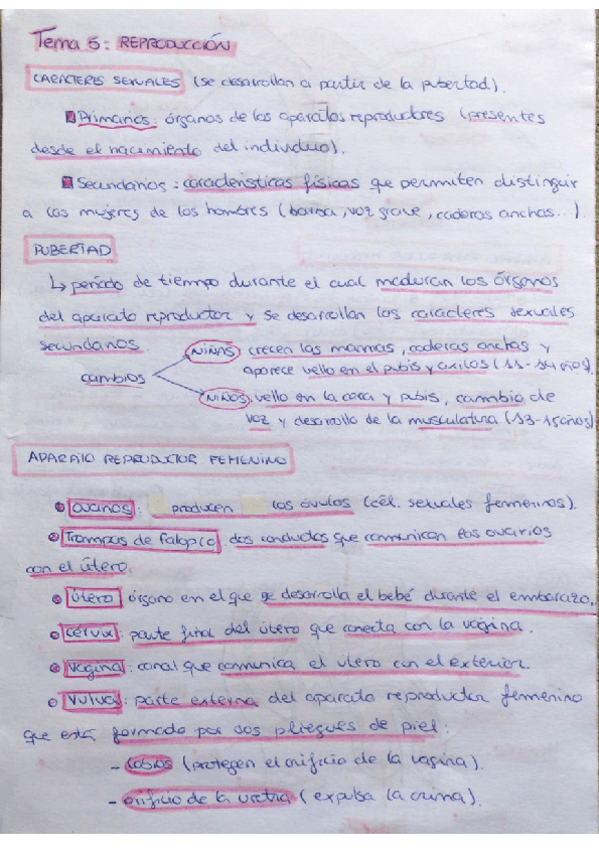 Tema 5: REPRODUCCIÓN
CARACTERES SEXUALES (se desarrollan a partir de la pubertad).
Primarios: órganos de los aparatos reproductores (presentes
desde el nacimiento del individuo).
Secundarios: características físicas que permiten distinguir
a las mujeres de los hombres (barba, voz grave, caderas anchas...).
PUBERTAD
↳ período de tiempo durante el cual maduran los órganos
del aparato reproductor y se desarrollan los caracteres sexuales
secundarios.
cambios
NIÑAS crecen las mamas, caderas anchas y
aparece vello en el pubis y axilas (11-14 años).
NIÑOS vello en la cara y pubis, cambio de
voz y desarrollo de la musculatura (13-15 años)
APARATO REPRODUCTOR FEMENINO
ovarios: producen los óvulos (cél. sexuales femeninas).
Trompas de Falopio: dos conductos que comunican los ovarios
con el útero.
útero: órgano en el que se desarrolla el bebé durante el embarazo.
cérvix: parte final del útero que conecta con la vagina.
vagina: canal que comunica el útero con el exterior.
vulva: parte externa del aparato reproductor femenino
que está formado por dos pliegues de piel:
- labios (protegen el orificio de la vagina).
- orificio de la uretra (expulsa la orina).